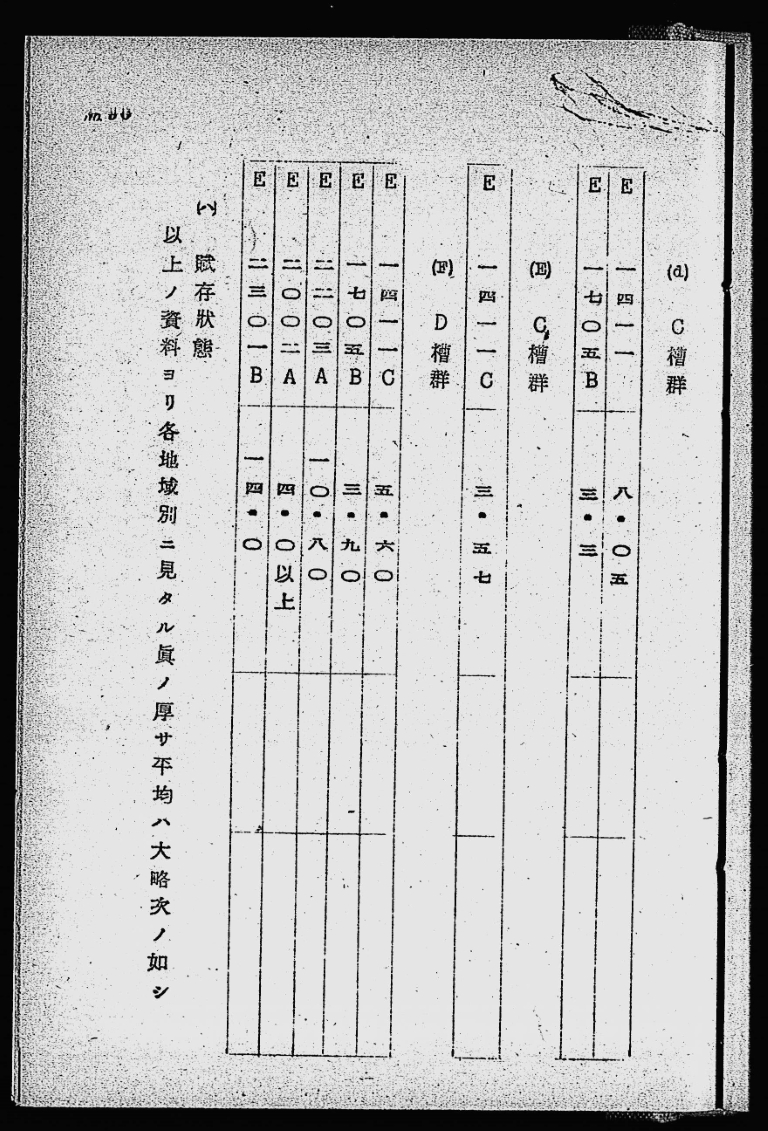 (d) C槽群
E 一四一一 八・〇五
E 一七〇五B 三・三
(E) C槽群
E 一四一一C 三・五七
(F) D槽群
E 一四一一C 五・六〇
E 一七〇五B 三・九〇
E 二二〇三A 一〇・八〇
E 二〇〇二A 四・〇以上
E 二三〇一B 一四・〇
(ハ) 賦存狀態
以上ノ資料ヨリ各地域別ニ見タル眞ノ厚サ平均ハ大略次ノ如シ